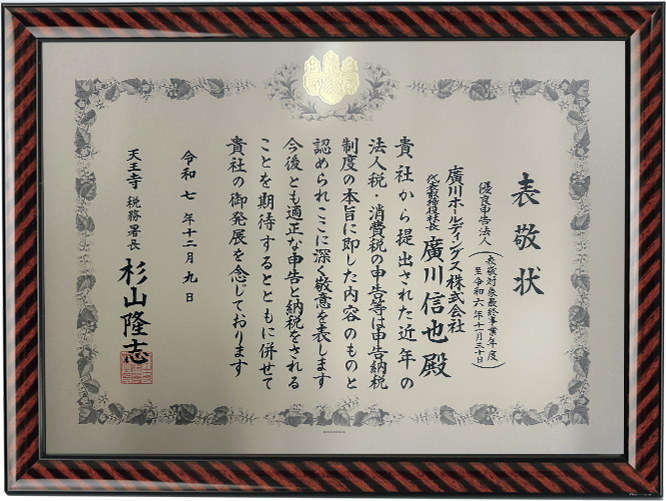 表敬状
優良申告法人
(表敬対象最終事業年度
至令和六年十一月三十日)
廣川ホールディングス株式会社
代表取締役社長 廣川信也殿
貴社から提出された近年の
法人税・消費税の申告等は申告納税
制度の本旨に即した内容のものと
認められここに深く敬意を表します
今後とも適正な申告と納税をされる
ことを期待するとともに併せて
貴社の御発展を念じております
令和七年十二月九日
天王寺税務署長 杉山隆志